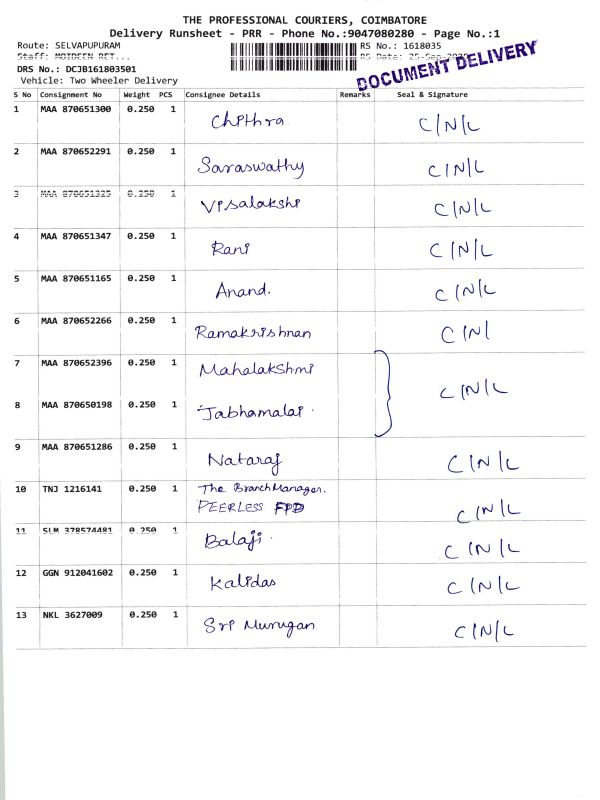 THE PROFESSIONAL COURIERS, COIMBATORE
Delivery Runsheet - PRR - Phone No.:9047080280 - Page No.:1
Route: SELVAPUPURAM RS No.: 1618035
Staff: MOIDEEN RS Date: 25-Sep
DRS No.: DCJB161803501 DOCUMENT DELIVERY
Vehicle: Two Wheeler Delivery
S No Consignment No Weight PCS Consignee Details Remarks Seal & Signature
1 MAA 870651300 0.250 1 Chithra C/N/L
2 MAA 870652291 0.250 1 Saraswathy C/N/L
3 MAA 870651325 0.250 1 Visalakshi C/N/L
4 MAA 870651347 0.250 1 Rani C/N/L
5 MAA 870651165 0.250 1 Anand. C/N/L
6 MAA 870652266 0.250 1 Ramakrishnan C/N/
7 MAA 870652396 0.250 1 Mahalakshmi C/N/L
8 MAA 870650198 0.250 1 Jabhamalai.
9 MAA 870651286 0.250 1 Nataraj C/N/L
10 TNJ 1216141 0.250 1 The Branch Manager.
PEERLESS FPD C/N/L
11 SLM 378574481 0.250 1 Balaji. C/N/L
12 GGN 912041602 0.250 1 Kalidas C/N/L
13 NKL 3627009 0.250 1 Sri Murugan C/N/L